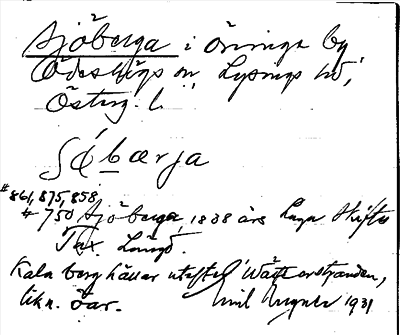 Sjöberga i Öninge by
Ödeshögs sn Lysings hd,
Österg. l.
Sø̀bærja
# 861, 875, 858,
# 750 Sjöberga, 1838 års Laga Skiftes
Tax. Längd.
Kala berghällar utefter Vätterstranden,
likn. öar. Emil 1931